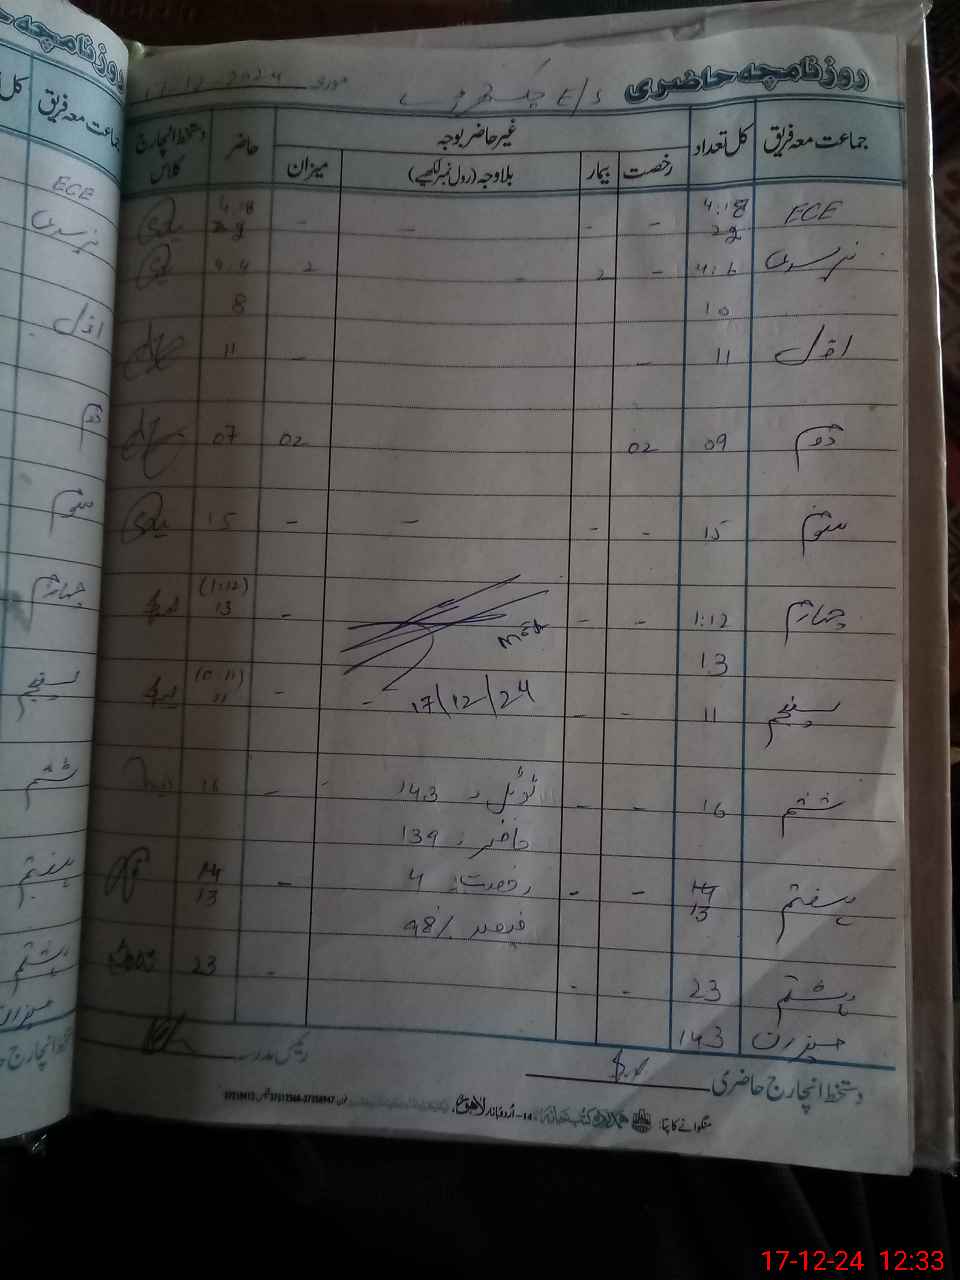 روزنامچہ حاضری E/S مورخہ 17-12-2024
جماعت معہ فریق کل تعداد غیر حاضر بوجہ حاضر دستخط انچارج کلاس
رخصت بیمار بلاوجہ (رول نمبر لکھیے) میزان
ECE 4:18 - - - - 4:18
22 22
نرسری 4:6 - 2 - 2 4:4
10 8
اول 11 - - 11
دوم 09 02 02 07
سوئم 15 - - - - 15
چہارم 1:12 - - - (1:12)
13 13
پنجم 11 - - - - (0:11)
11
17/12/24
ششم 16 - - ٹوٹل 143 - 16
حاضر 139
ہفتم 14 - - رخصت 4 - 14
13 13
فیصد 98%
ہشتم 23 - - - 23
میزان 143
دستخط انچارج حاضری رئیس مدرسہ
منگوانے کا پتہ: اُردو بازار لاہور
روزنامچہ حاضری
جماعت معہ فریق
ECE
نرسری
اول
دوم
سوئم
چہارم
پنجم
ششم
ہفتم
ہشتم
17-12-24 12:33